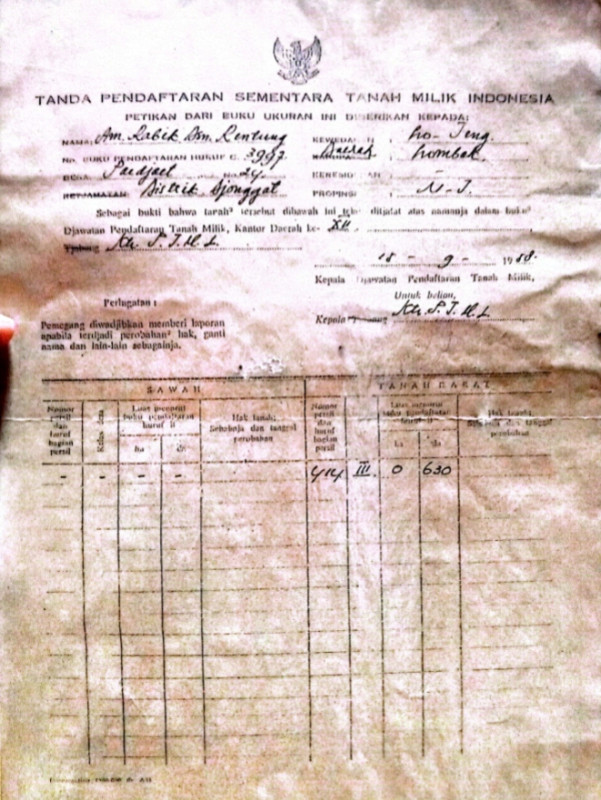 TANDA PENDAFTARAN SEMENTARA TANAH MILIK INDONESIA
PETIKAN DARI BUKU UKURAN INI DIBERIKAN KEPADA:
NAMA: Am. Rabik Bin Rentung
KEWEDANAAN: Lo-Teng
No. BUKU PENDAFTARAN HURUF C. 3997
Daerah Lombok.
DESA No. 24
KERESIDENAN —
KETJAMATAN: Distrik Djonggat
PROPINSI N-T.
Sebagai bukti bahwa tanah² tersebut dibawah ini telah ditjatat atas namanja dalam buku²
Djawatan Pendaftaran Tanah Milik, Kantor Daerah ke- XII
Ktr. P.T.M.L
15 - 9 - 1958.
Kepala Djawatan Pendaftaran Tanah Milik,
Untuk beliau,
Kepala Ktr. P.T.M.L
Peringatan :
Pemegang diwadjibkan memberi laporan
apabila terdjadi perobahan² hak, ganti
nama dan lain-lain sebagainja.
SAWAH
TANAH DARAT
Nomor persil dan huruf bagian persil
Kelas desa
Luas menurut buku pendaftaran huruf C
ha
da
Hak tanah, Sebabnja dan tanggal perobahan
Nomor persil dan huruf bagian persil
Luas menurut buku pendaftaran huruf C
ha
da
Hak tanah, Sebabnja dan tanggal perobahan
- - - - 414 III 0 630